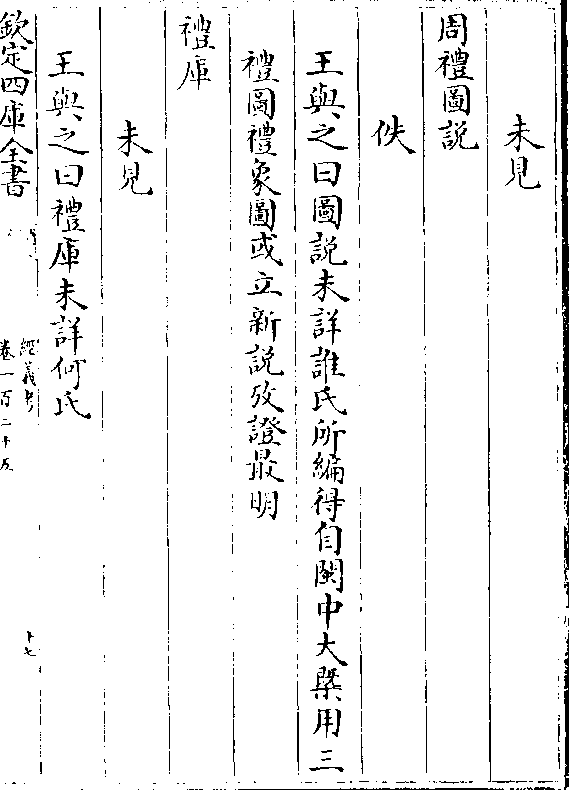 未見
周禮圖説
佚
王與之曰圖説未詳誰氏所編得自閩中大槩用三
禮圖禮象圖或立新説攷證最明
禮庫
未見
王與之曰禮庫未詳何氏
欽定四庫全書
經義考
卷一百二十五
十七